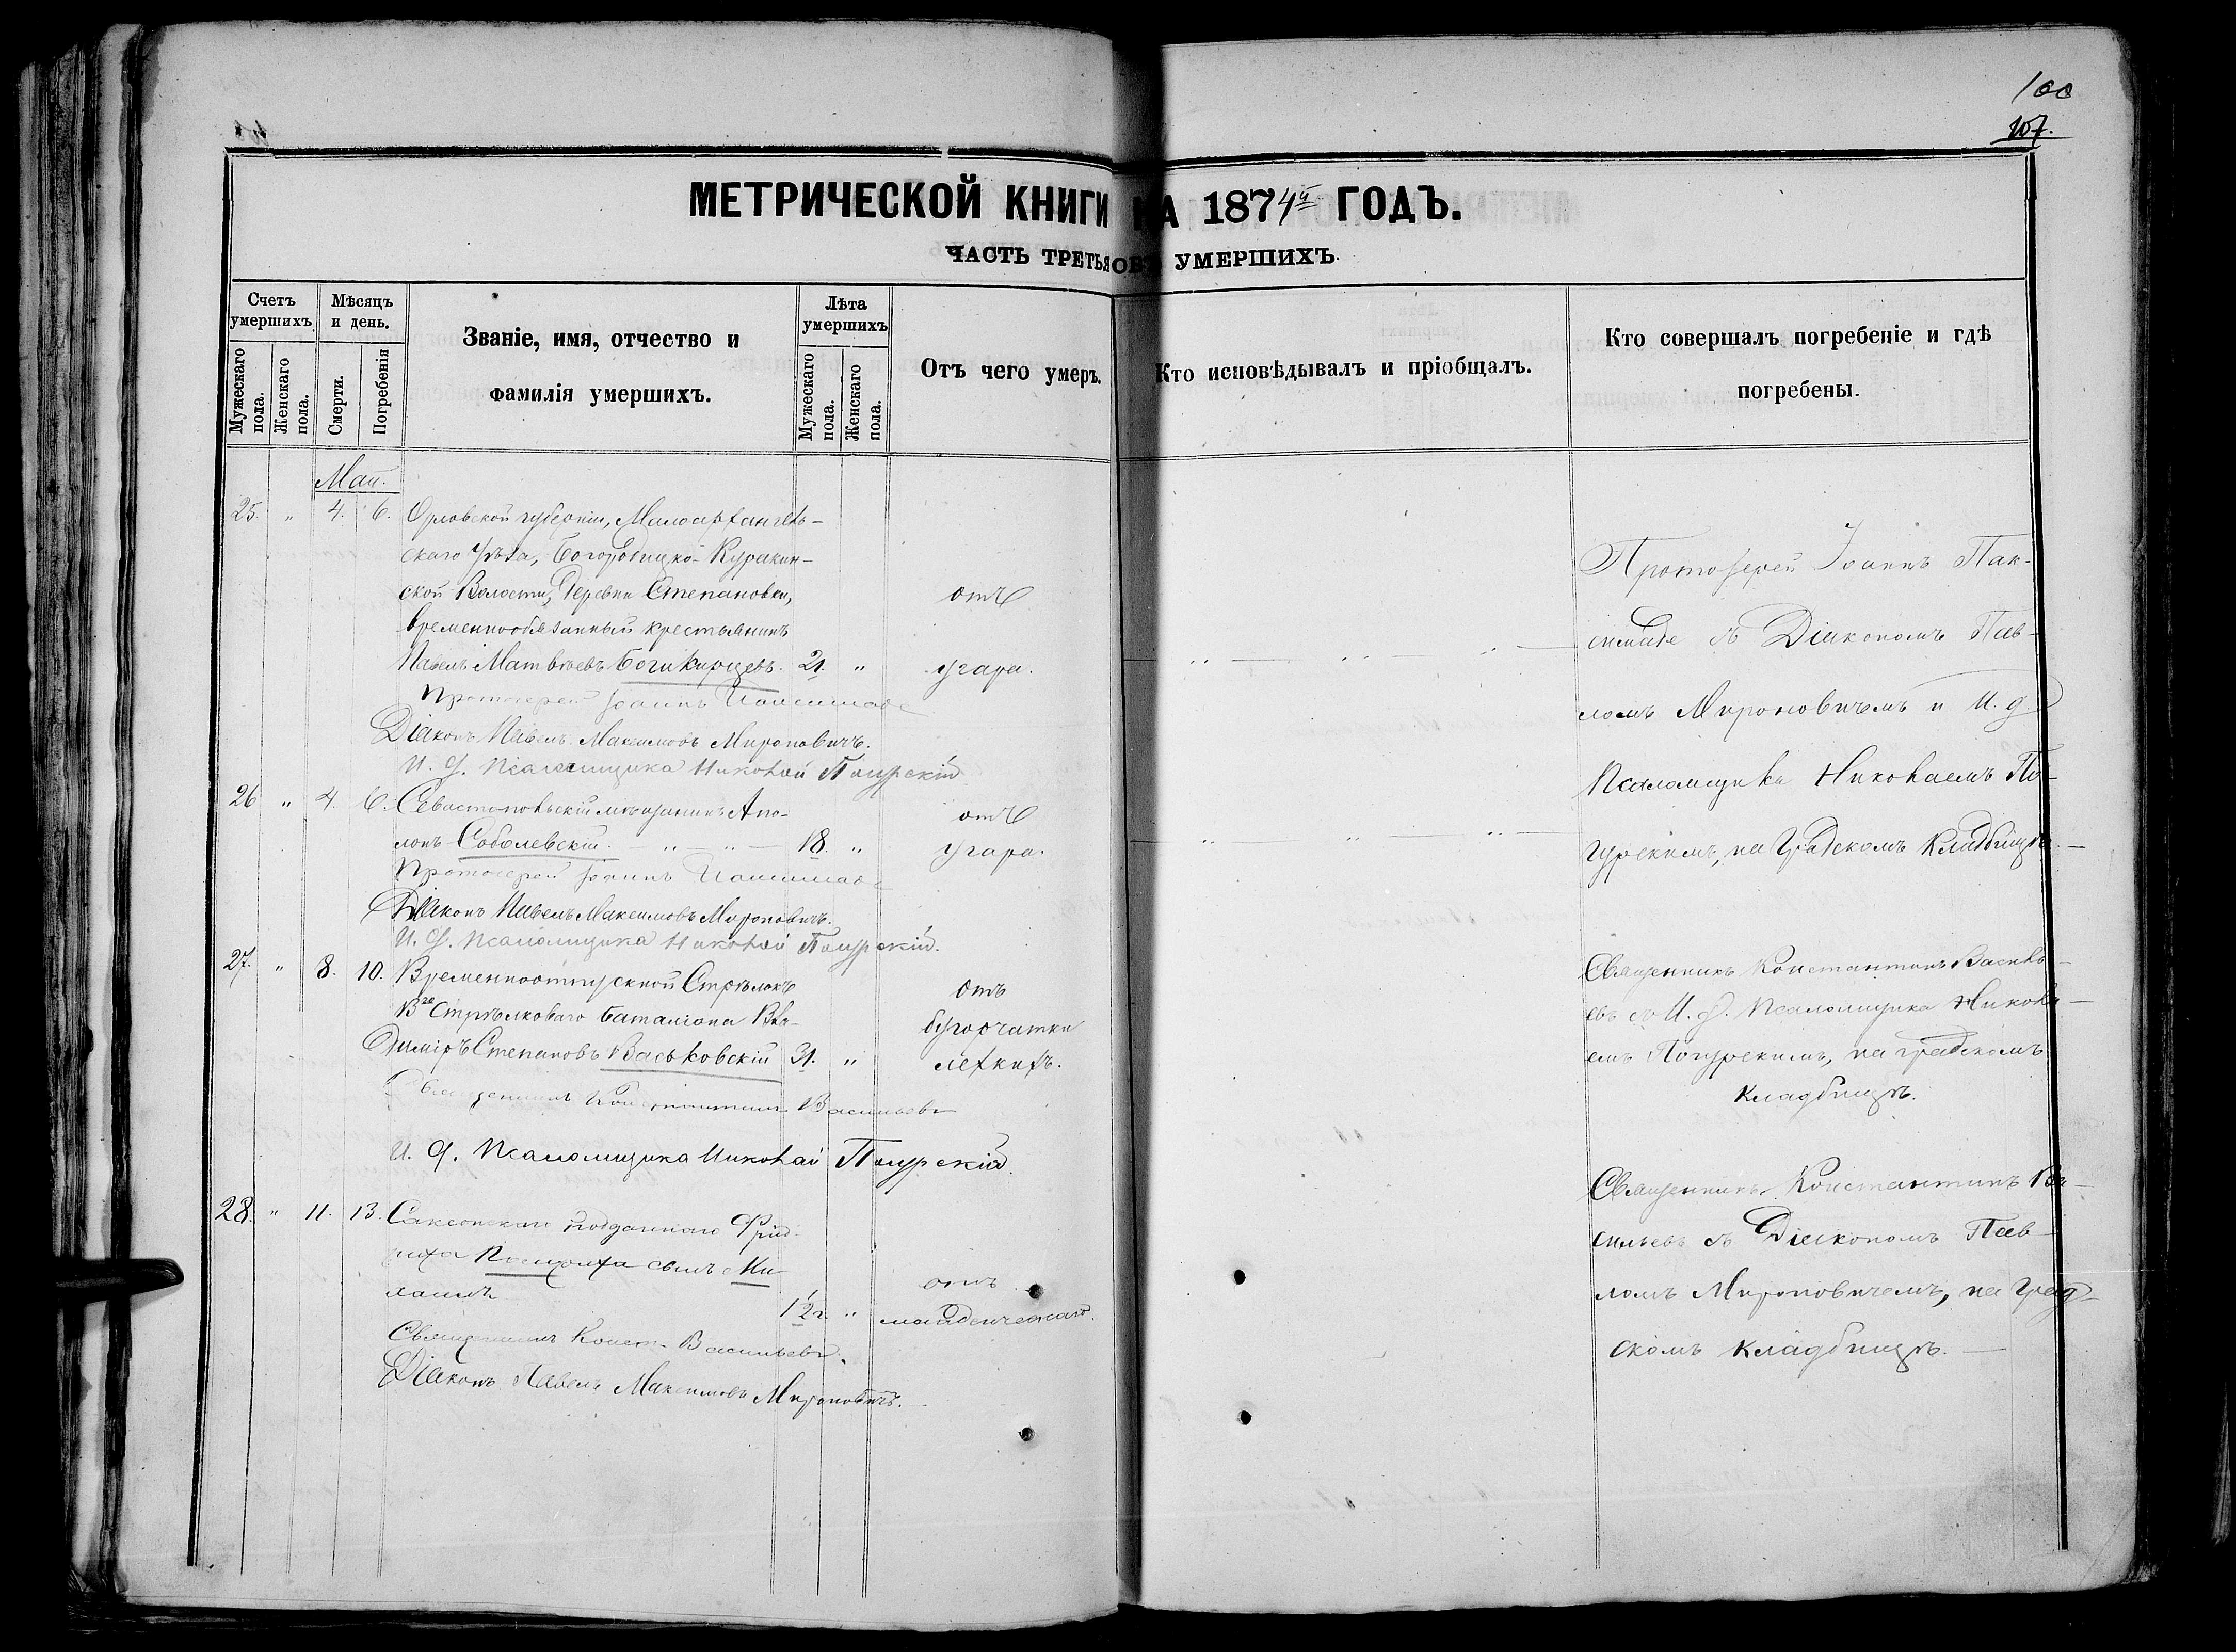 100
107.
МЕТРИЧЕСКОЙ КНИГИ НА 1874й ГОДЪ.
ЧАСТЬ ТРЕТЬЯ О УМЕРШИХЪ.
Счетъ умершихъ.
Мужескаго пола.
Женскаго пола.
Мѣсяцъ и день.
Смерти.
Погребенія
Званіе, имя, отчество и
фамилія умершихъ.
Лѣта умершихъ
Мужескаго пола.
Женскаго пола.
Отъ чего умеръ.
Кто исповѣдывалъ и пріобщалъ.
Кто совершалъ погребеніе и гдѣ
погребены.
Маи.
25. " 4. 6. Орловской губерніи, Малоархангель-
скаго уѣзда, Богородицко-Куракин-
ской Волости, Деревни Степановки,
временнообязанный крестьянинъ
Павелъ Матвѣевъ 21. "
отъ
угара.
Протоіерей Іоаннъ
Діаконъ Павелъ Максимовъ Мироновичъ.
И. д. псаломщика Николай
Протоіерей Іоаннъ
съ Діакономъ Пав-
ломъ Мироновичемъ и И. д.
Псаломщика Николаемъ
на Градскомъ Кладбищѣ.
26 " 4. 6. Севастопольскій мѣщанинъ Апо-
лонъ Соболевскій. 18. "
отъ
угара.
Протоіерей Іоаннъ
Діаконъ Павелъ Максимовъ Мироновичъ.
И. д. псаломщика Николай
27. " 8. 10. Временноотпускной Стрѣлокъ
Стрѣлковаго баталіона Вла-
диміръ Степановъ Васьковскій 31. "
отъ
бугорчатки
легкихъ.
Священникъ Константинъ Васильевъ
И. д. псаломщика Николай
Священникъ Константинъ Василь-
евъ съ И. д. псаломщика Никола-
емъ на градскомъ
кладбищѣ.
28. " 11. 13. Саксонскаго подданнаго Фрид-
риха сынъ Ми-
хаилъ 1 2г. "
отъ
младенческой.
Священникъ Конст. Васильевъ.
Діаконъ Павелъ Максимовъ Мироновичъ.
Священникъ Константинъ Ва-
сильевъ съ Діакономъ Пав-
ломъ Мироновичемъ, на град-
скомъ кладбищѣ.